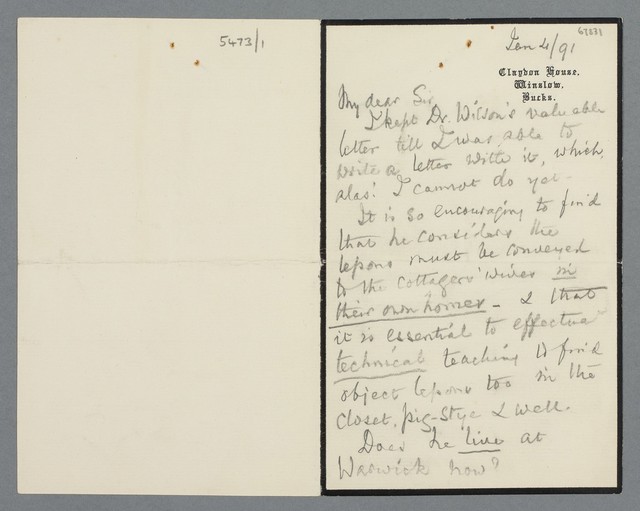 5473/1
Jan 4/91
Claydon House,
Winslow,
Bucks.
My dear Sir
I kept Dr. Wilson's valuable
letter till I was able to
write a letter with it, which,
alas! I cannot do yet -
It is so encouraging to find
that he considers the
lessons must be conveyed
to the cottagers' wives in
their own homes - & that
it is essential to effectual
technical teaching to find
object lessons too in the
closet, pig-stye & well.
Does he live at
Warwick now?